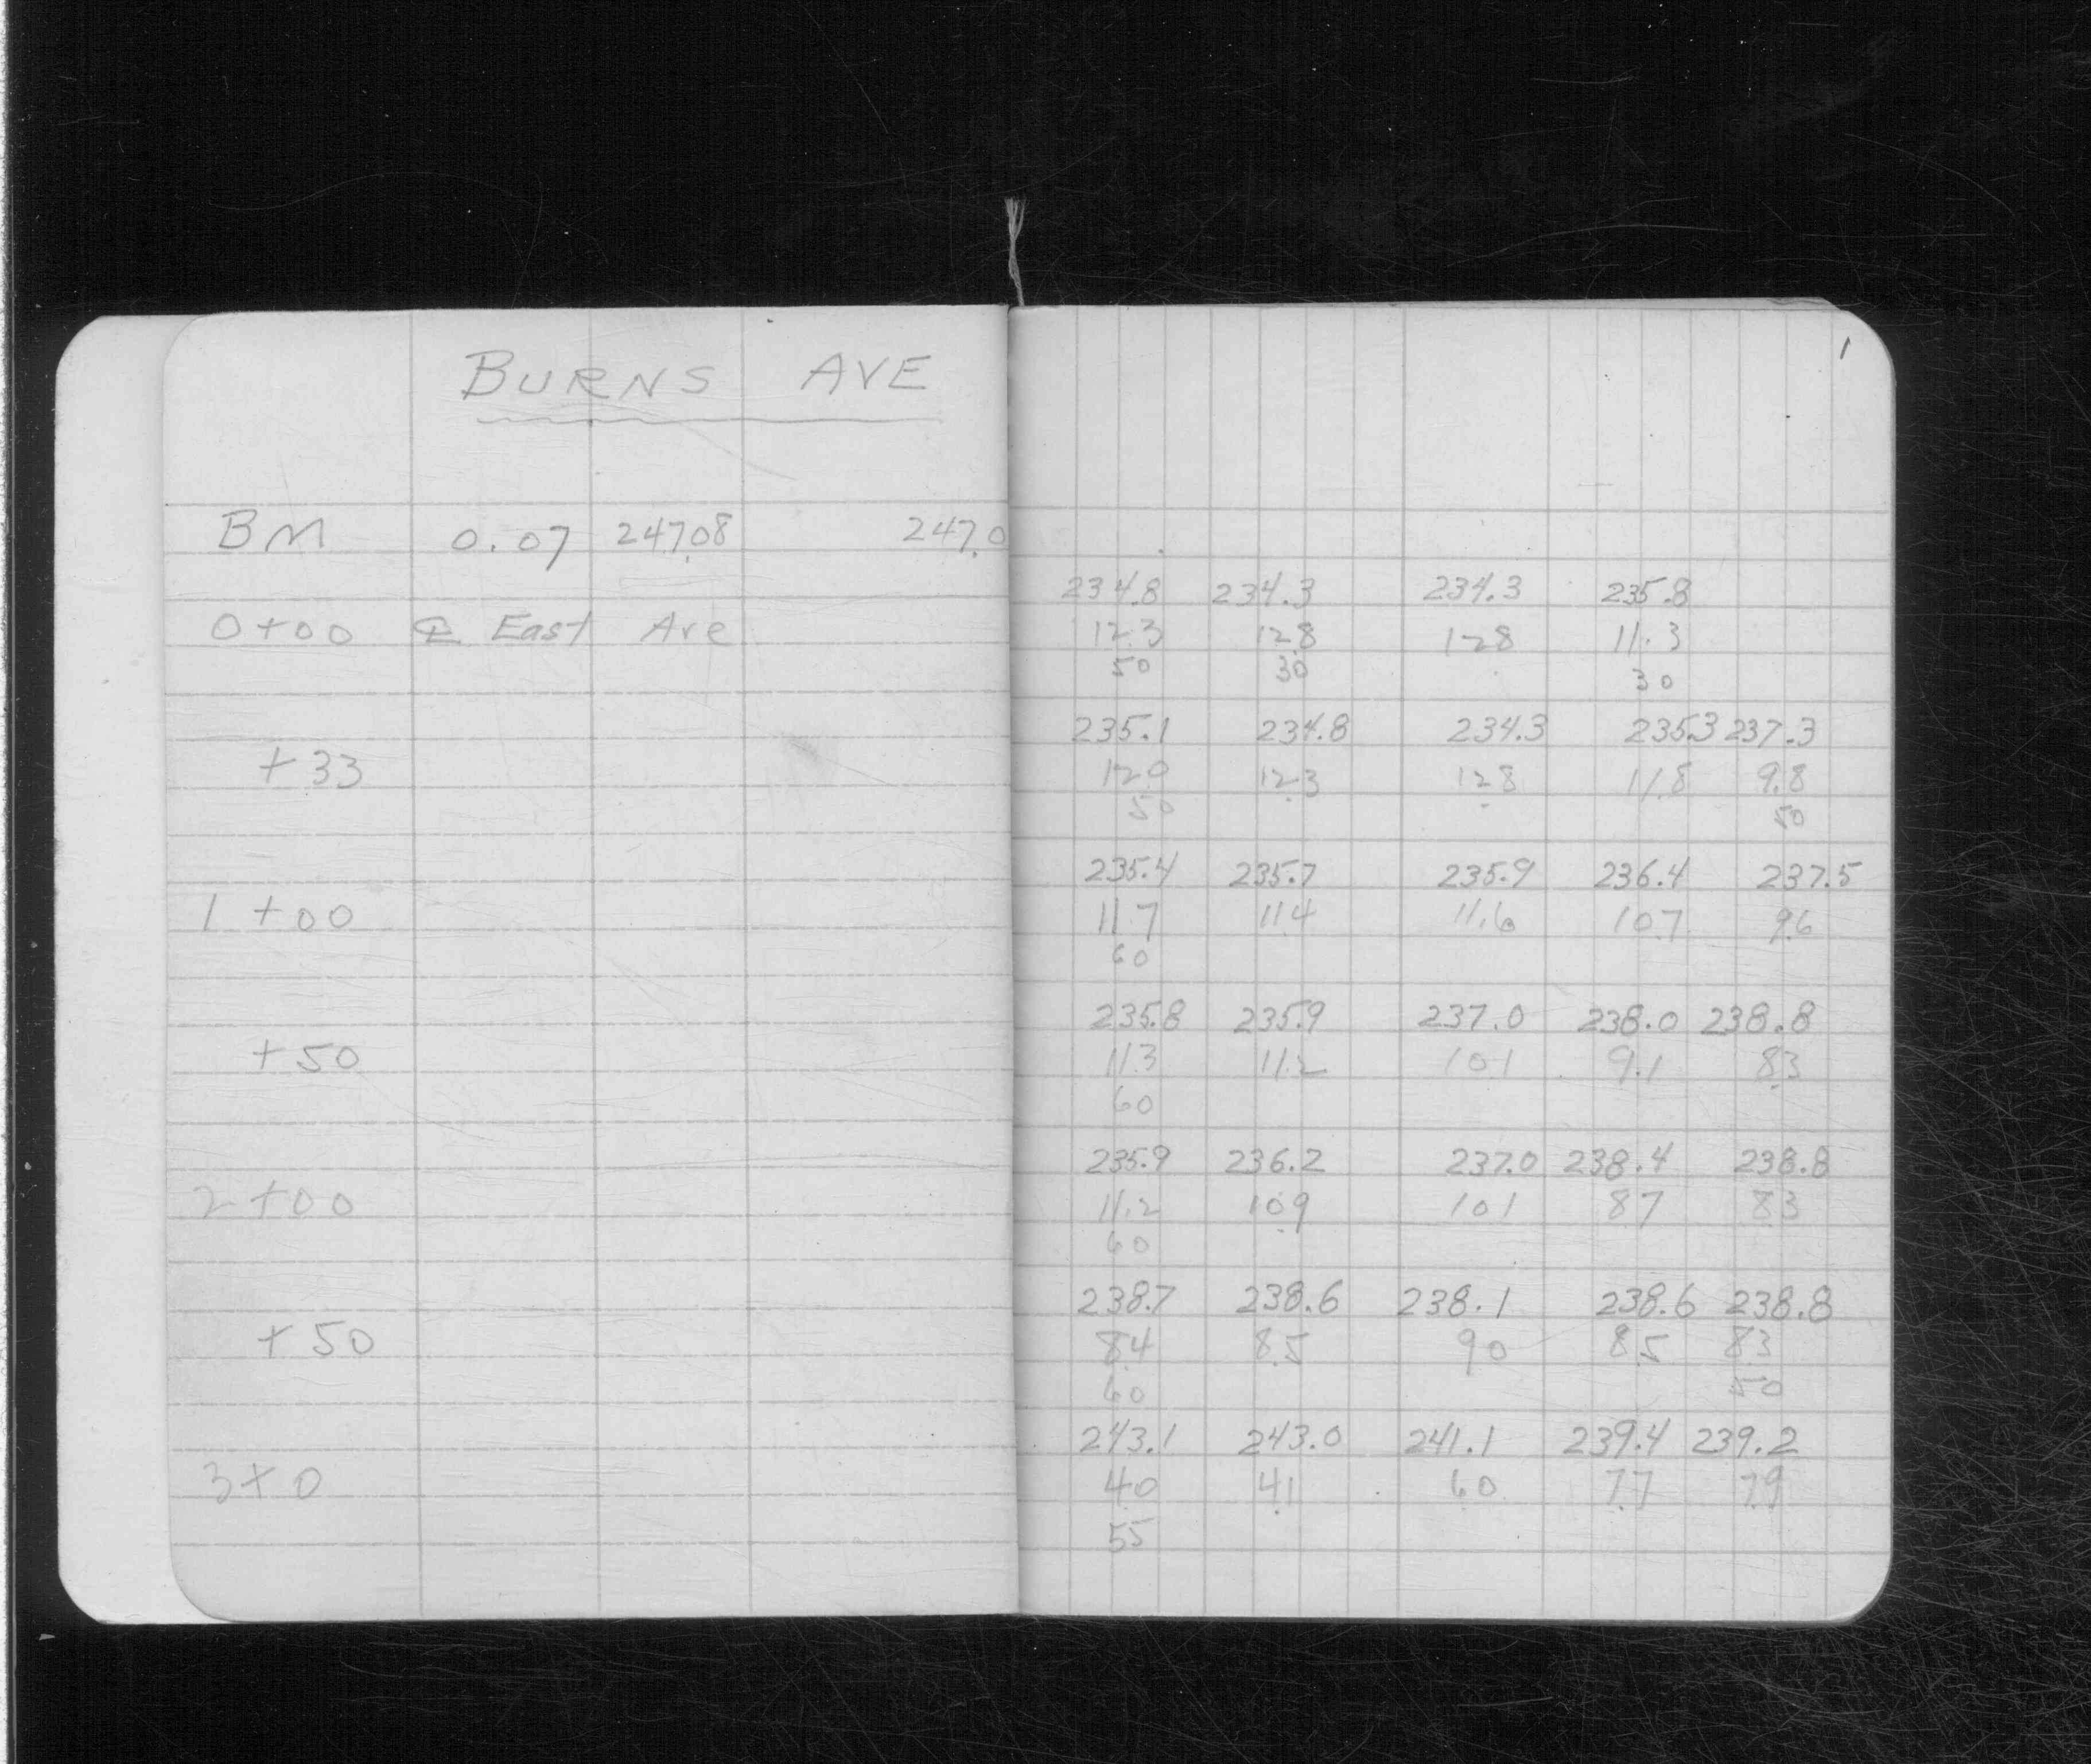 1
BURNS AVE
BM 0.07 247.08 247.0
234.8 234.3 234.3 235.8
0+00 ℄ East Ave 12.3 12.8 128 11.3
50 30 30
235.1 234.8 234.3 235.3 237.3
+33 12.0 12.3 12.8 11.8 9.8
50 50
235.4 235.7 235.9 236.4 237.5
1+00 11.7 11.4 11.6 10.7 9.6
60
235.8 235.9 237.0 238.0 238.8
+50 11.3 11.2 101 9.1 8.3
60
235.9 236.2 237.0 238.4 238.8
2+00 11.2 10.9 101 87 83
60
238.7 238.6 238.1 238.6 238.8
+50 8.4 8.5 90 8.5 83
60 50
243.1 243.0 241.1 239.4 239.2
3+0 4.0 4.1 6.0 7.7 7.9
55